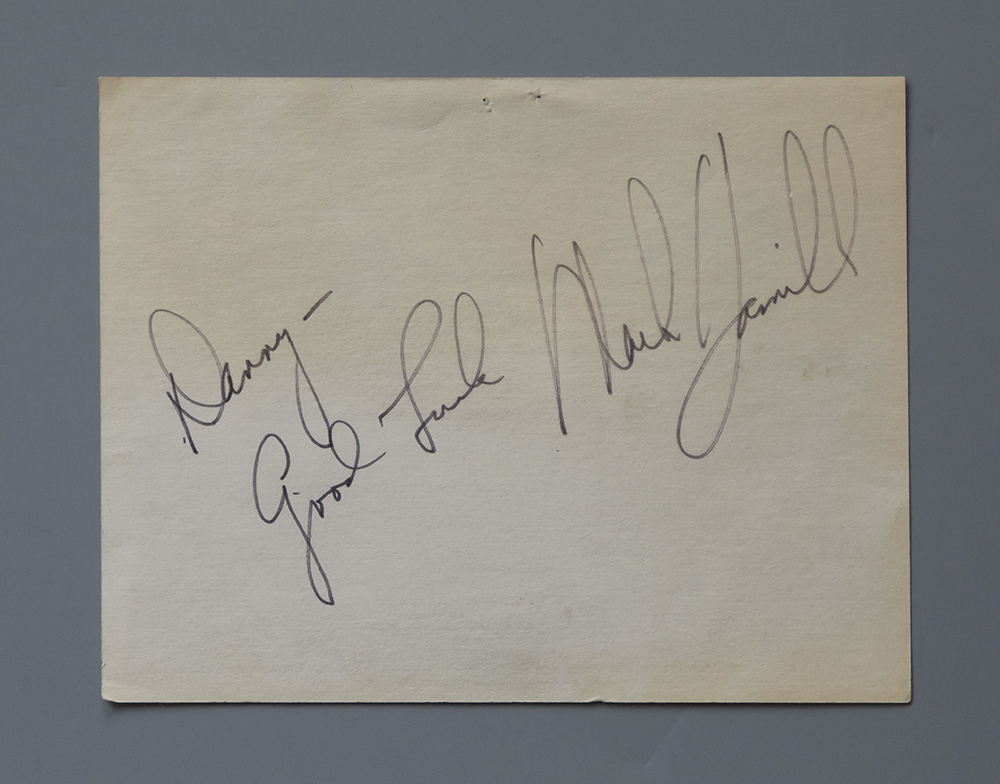 Danny -
Good Luck
Mark Hamill